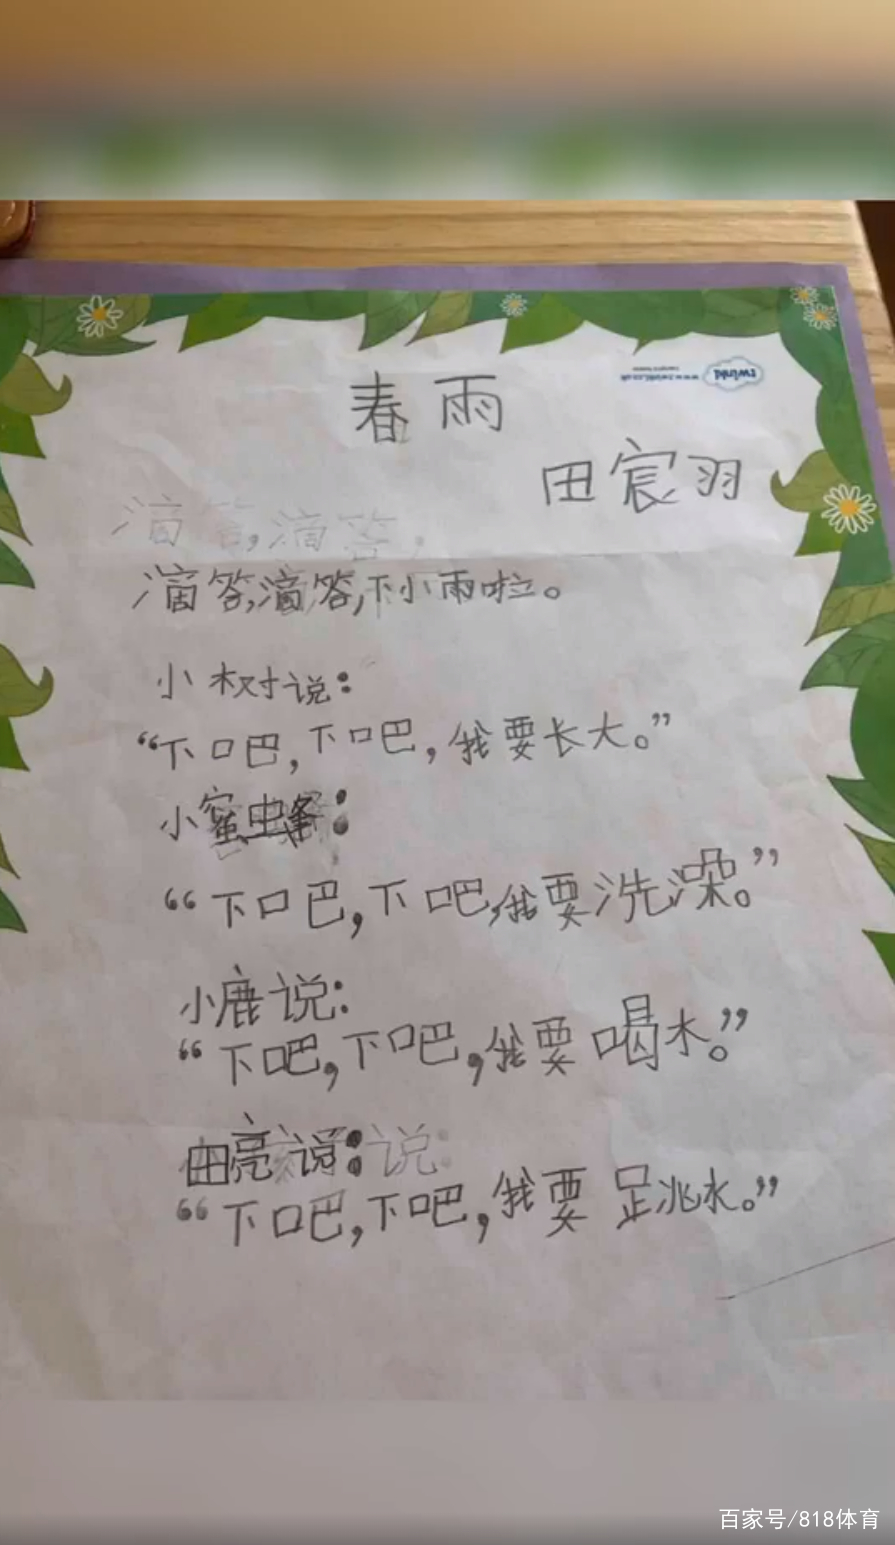 春雨
www.twinkl.co.uk
twinkl
田宸羽
滴答,滴答,
滴答,滴答,下小雨啦。
小树说:
“下吧,下吧,我要长大。”
小蜜蜂:
“下吧,下吧,我要洗澡。”
小鹿说:
“下吧,下吧,我要喝水。”
田亮说:说:
“下吧,下吧,我要跳水。”
百家号/818体育